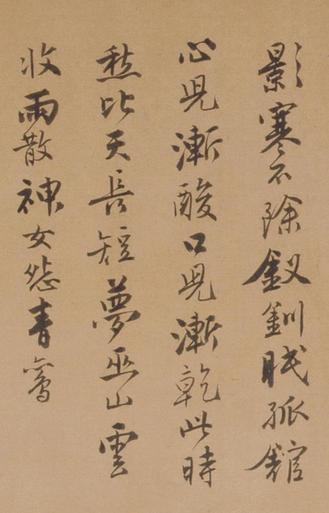 影寒不除釵釧眠孤館
心児漸酸口児漸乾此時
愁比天長短夢巫山雲
收雨散神女青鸞